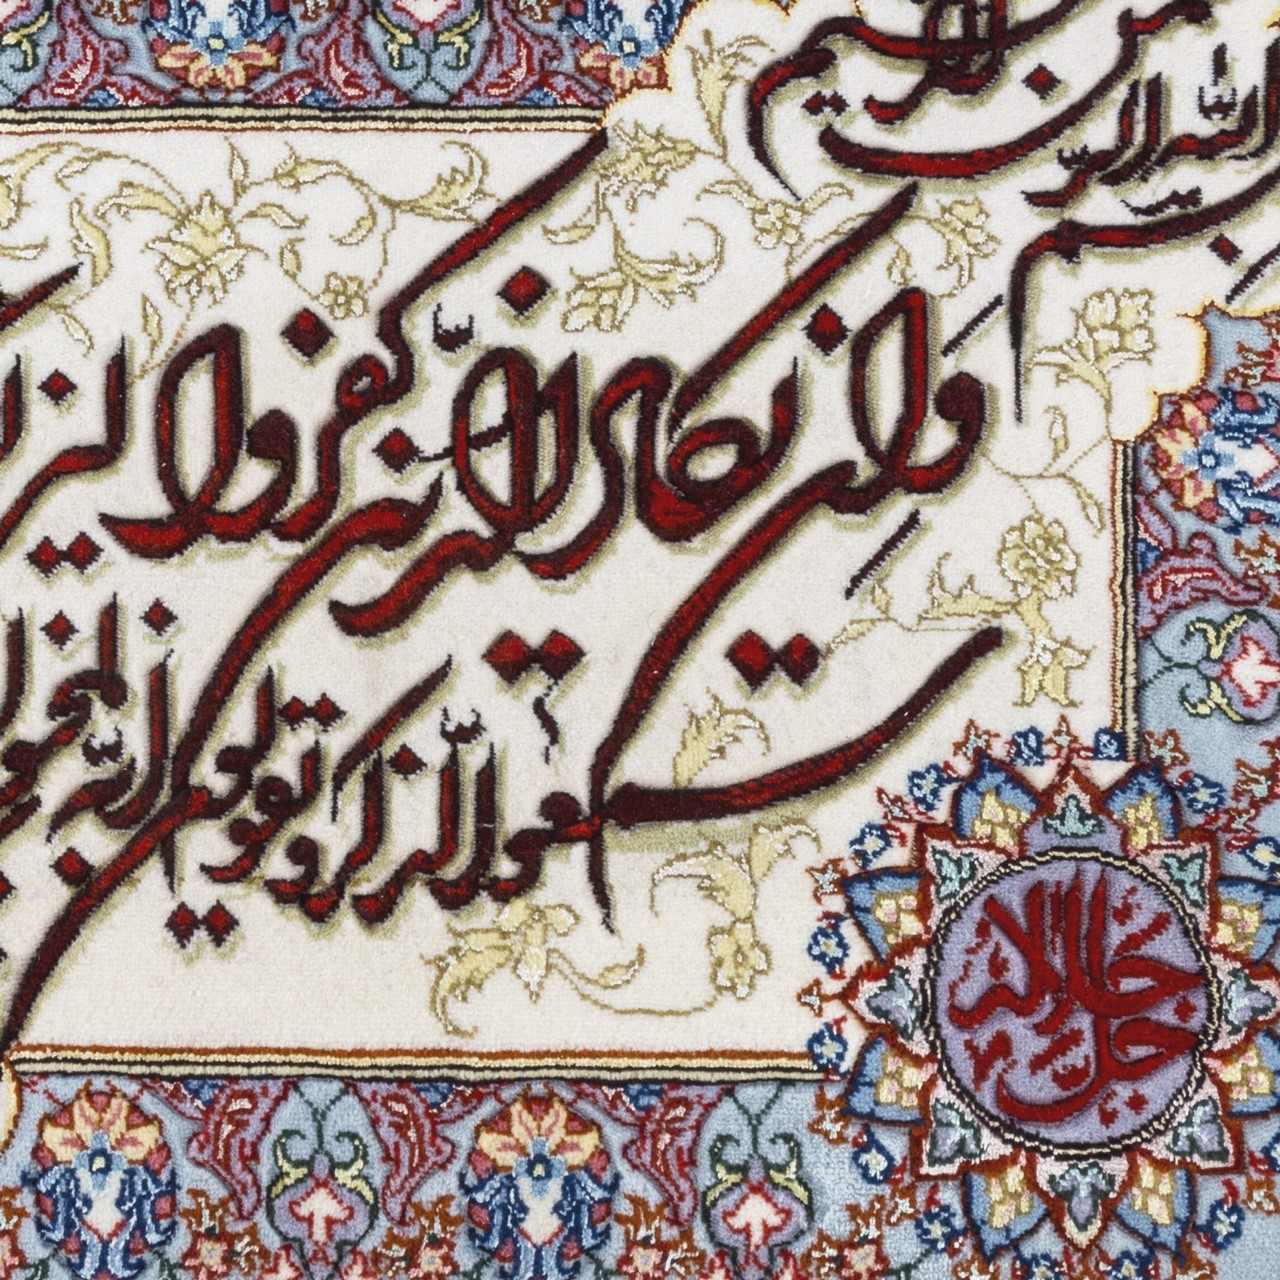 بسم الله الرحمن الرحیم
وَان یکاد الّذین کفروا لیز
سمعوا الّذکر و یقولون انّه لمجنو
جل جلاله